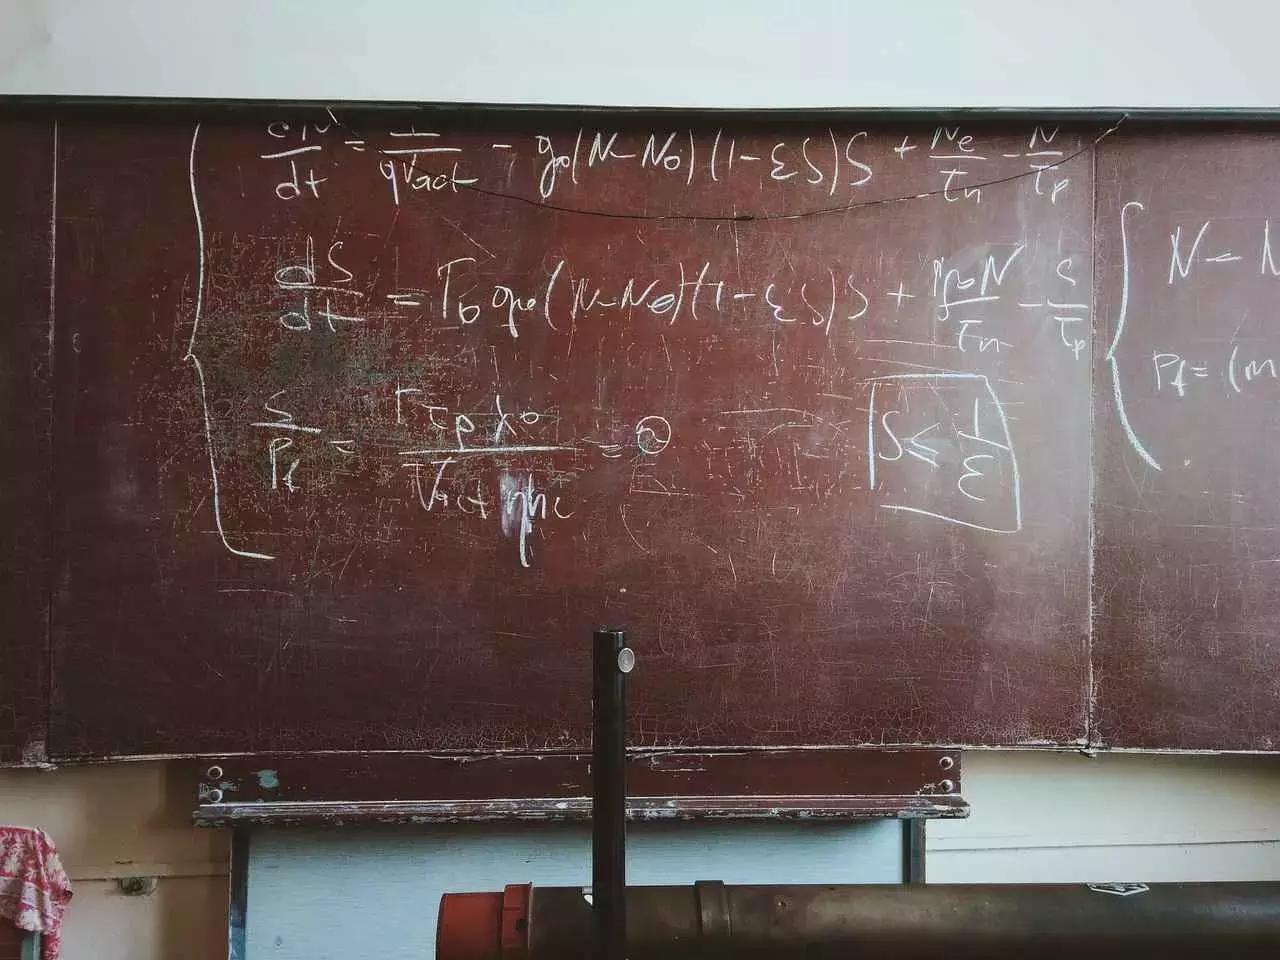 dN/dt = I/qVact - g₀(N-N₀)(1-εS)S + Ne/τn - N/τp
dS/dt = Γ₀g₀(N-N₀)(1-εS)S + N/τn - S/τp
S/Pf = Γτpλ₀/Vactηhc = ν
S ≤ 1/ε
N = N
Pf = (m